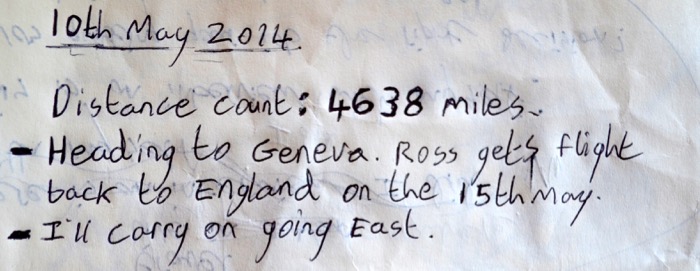 10th May 2014.
Distance count: 4638 miles.
- Heading to Geneva. Ross gets flight
back to England on the 15th May.
- I'll carry on going East.